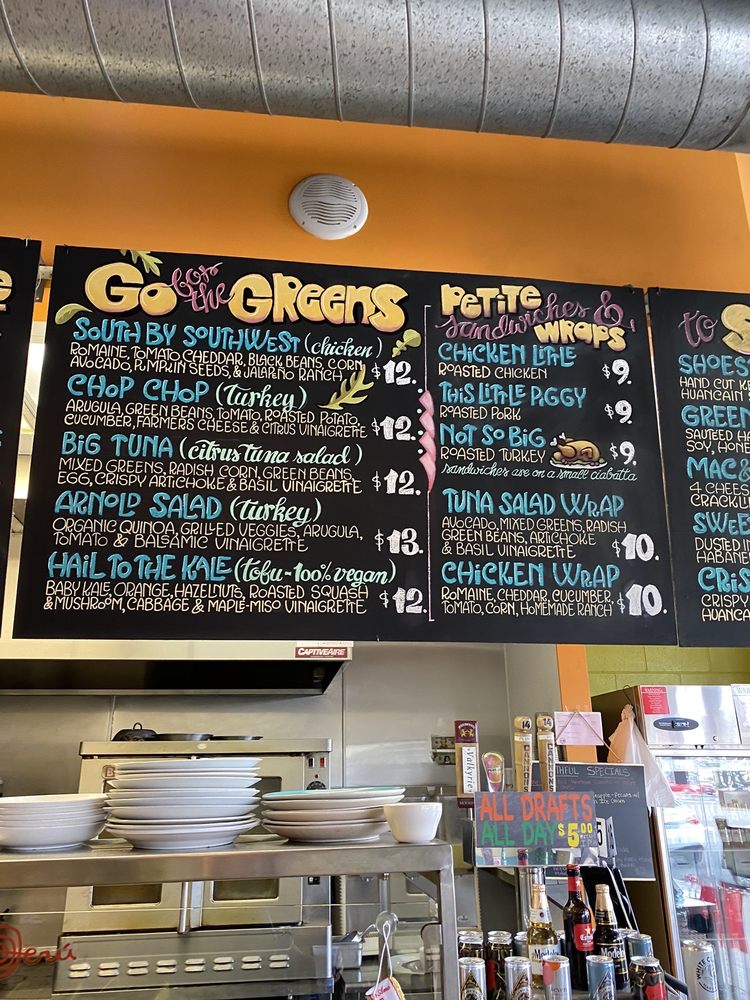 Go for the GREENS
SOUTH BY SOUTHWEST (chicken)
ROMAINE, TOMATO CHEDDAR, BLACK BEANS, CORN,
AVOCADO, PUMPKIN SEEDS, & JALAPEÑO RANCH $12.
CHOP CHOP (Turkey)
ARUGULA, GREEN BEANS, TOMATO, ROASTED POTATO,
CUCUMBER, FARMERS CHEESE & CITRUS VINAIGRETTE $12.
BIG TUNA (citrus tuna salad)
MIXED GREENS, RADISH CORN, GREEN BEANS,
EGG, CRISPY ARTICHOKE & BASIL VINAIGRETTE $12.
ARNOLD SALAD (turkey)
ORGANIC QUINOA, GRILLED VEGGIES, ARUGULA,
TOMATO & BALSAMIC VINAIGRETTE $13.
HAIL TO THE KALE (tofu-100% vegan)
BABY KALE, ORANGE, HAZELNUTS, ROASTED SQUASH
& MUSHROOM, CABBAGE & MAPLE-MISO VINAIGRETTE $12.
PETITE
sandwiches &
WRAPS
CHICKEN LITTLE
ROASTED CHICKEN $9.
THIS LITTLE PIGGY
ROASTED PORK $9.
NOT SO BIG
ROASTED TURKEY $9.
sandwiches are on a small ciabatta
TUNA SALAD WRAP
AVOCADO, MIXED GREENS, RADISH
GREEN BEANS, ARTICHOKE
& BASIL VINAIGRETTE $10.
CHICKEN WRAP
ROMAINE, CHEDDAR, CUCUMBER,
TOMATO, CORN, HOMEMADE RANCH $10.
to S
SHOES
HAND CUT
HUANCAIN
GREEN
SAUTEED
SOY, HONE
MAC &
4 CHEES
CRACKLI
SWEE
DUSTED
HABANE
CRIS
CRISPY
HUANCA
CAPTIVEAIRE
Valkyrie
14
14
CANYON
ALL DRAFTS
ALL DAY $5.00
THFUL SPECIALS
WARNING
Perú
Modelo
Estrella
Modelo
WHITE CLAW